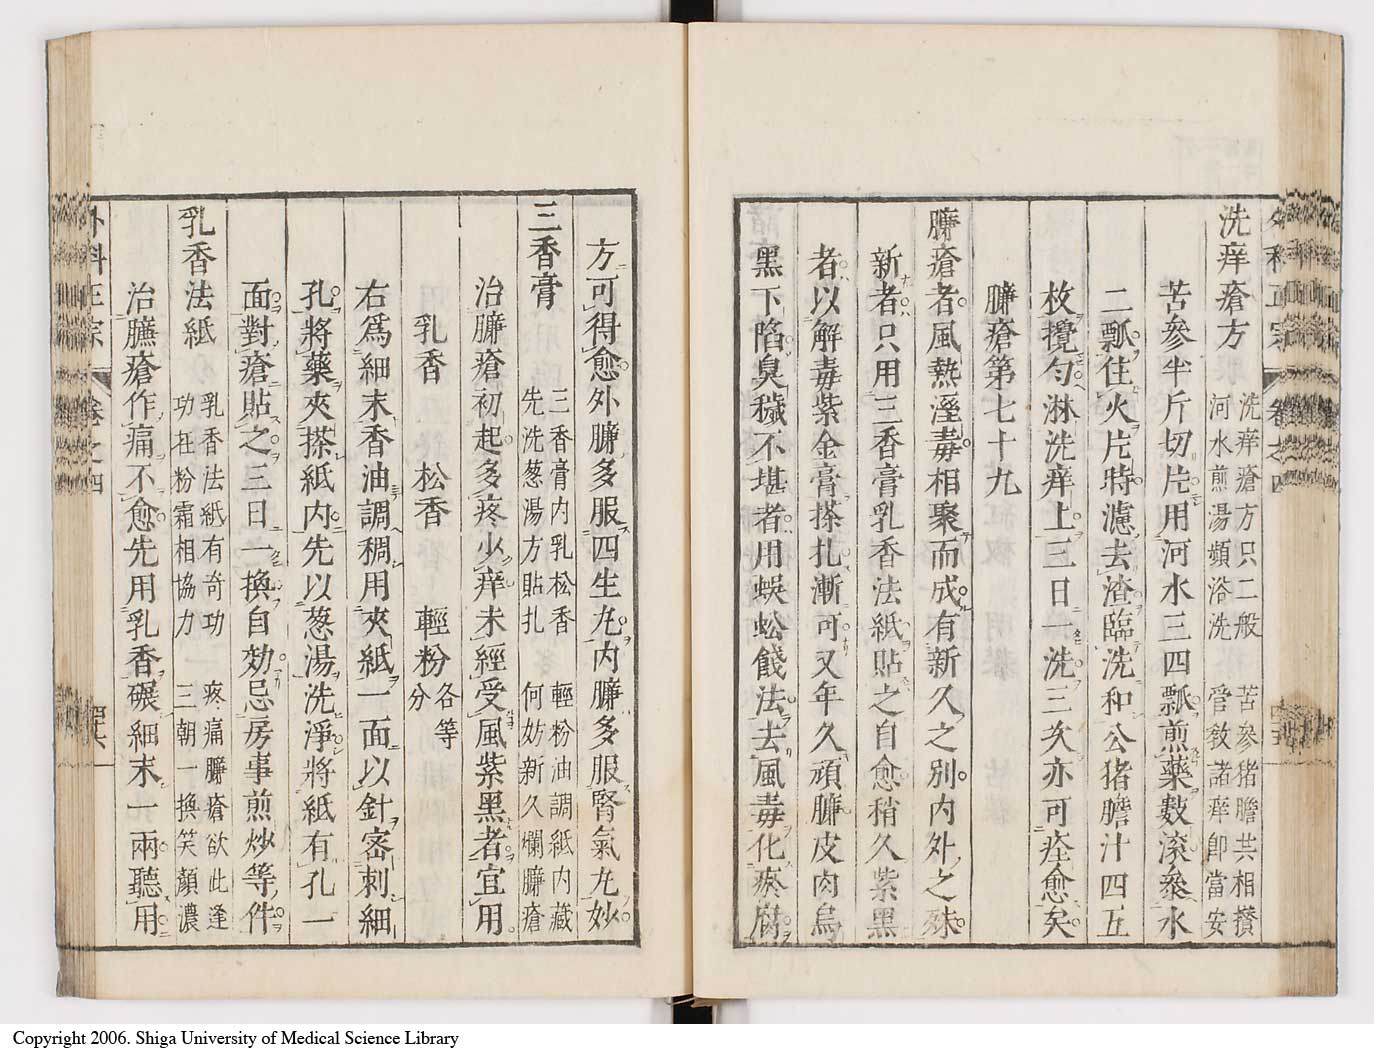 外科正宗 卷之四
洗痒瘡方
洗痒瘡方只二般 苦參猪膽共相攢
河水煎湯頻浴洗 管敎諸痒卽當安
苦參半斤切片用河水三四瓢煎藥數滾叅水
二瓢住火片時濾去渣臨洗和公猪膽汁四五
枚攪勻淋洗痒上三日一洗三次亦可痊愈矣
臁瘡第七十九
臁瘡者風熱溼毒相聚而成有新久之別內外之殊
新者只用三香膏乳香法紙貼之自愈稍久紫黑
者以解毒紫金膏搽扎漸可又年久頑臁皮肉烏
黑下陷臭穢不堪者用蜈蚣餞法去風毒化瘀腐
方可得愈外臁多服四生丸內臁多服腎氣丸妙
三香膏
三香膏內乳松香 輕粉油調紙內藏
先洗葱湯方貼扎 何妨新久爛臁瘡
治臁瘡初起多疼少痒未經受風紫黑者宜用
乳香 松香 輕粉各等分
右爲細末香油調稠用夾紙一面以針密刺細
孔將藥夾搽紙內先以葱湯洗淨將紙有孔一
面對瘡貼之三日一換自効忌房事煎炒等件
乳香法紙
乳香法紙有奇功 疼痛臁瘡欲此逢
功在粉霜相協力 三朝一換笑顏濃
治臕瘡作痛不愈先用乳香碾細末一兩聽用
外科正宗 卷之四
Copyright 2006. Shiga University of Medical Science Library